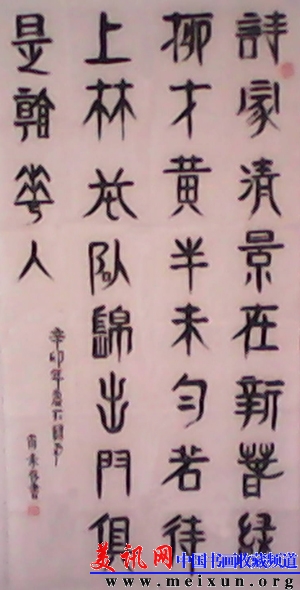 詩家清景在新春綠
柳才黃半未勻若待
上林花似錦出門俱
是看華人
辛卯年
書
美讯网 中国书画收藏频道
www.meixun.org